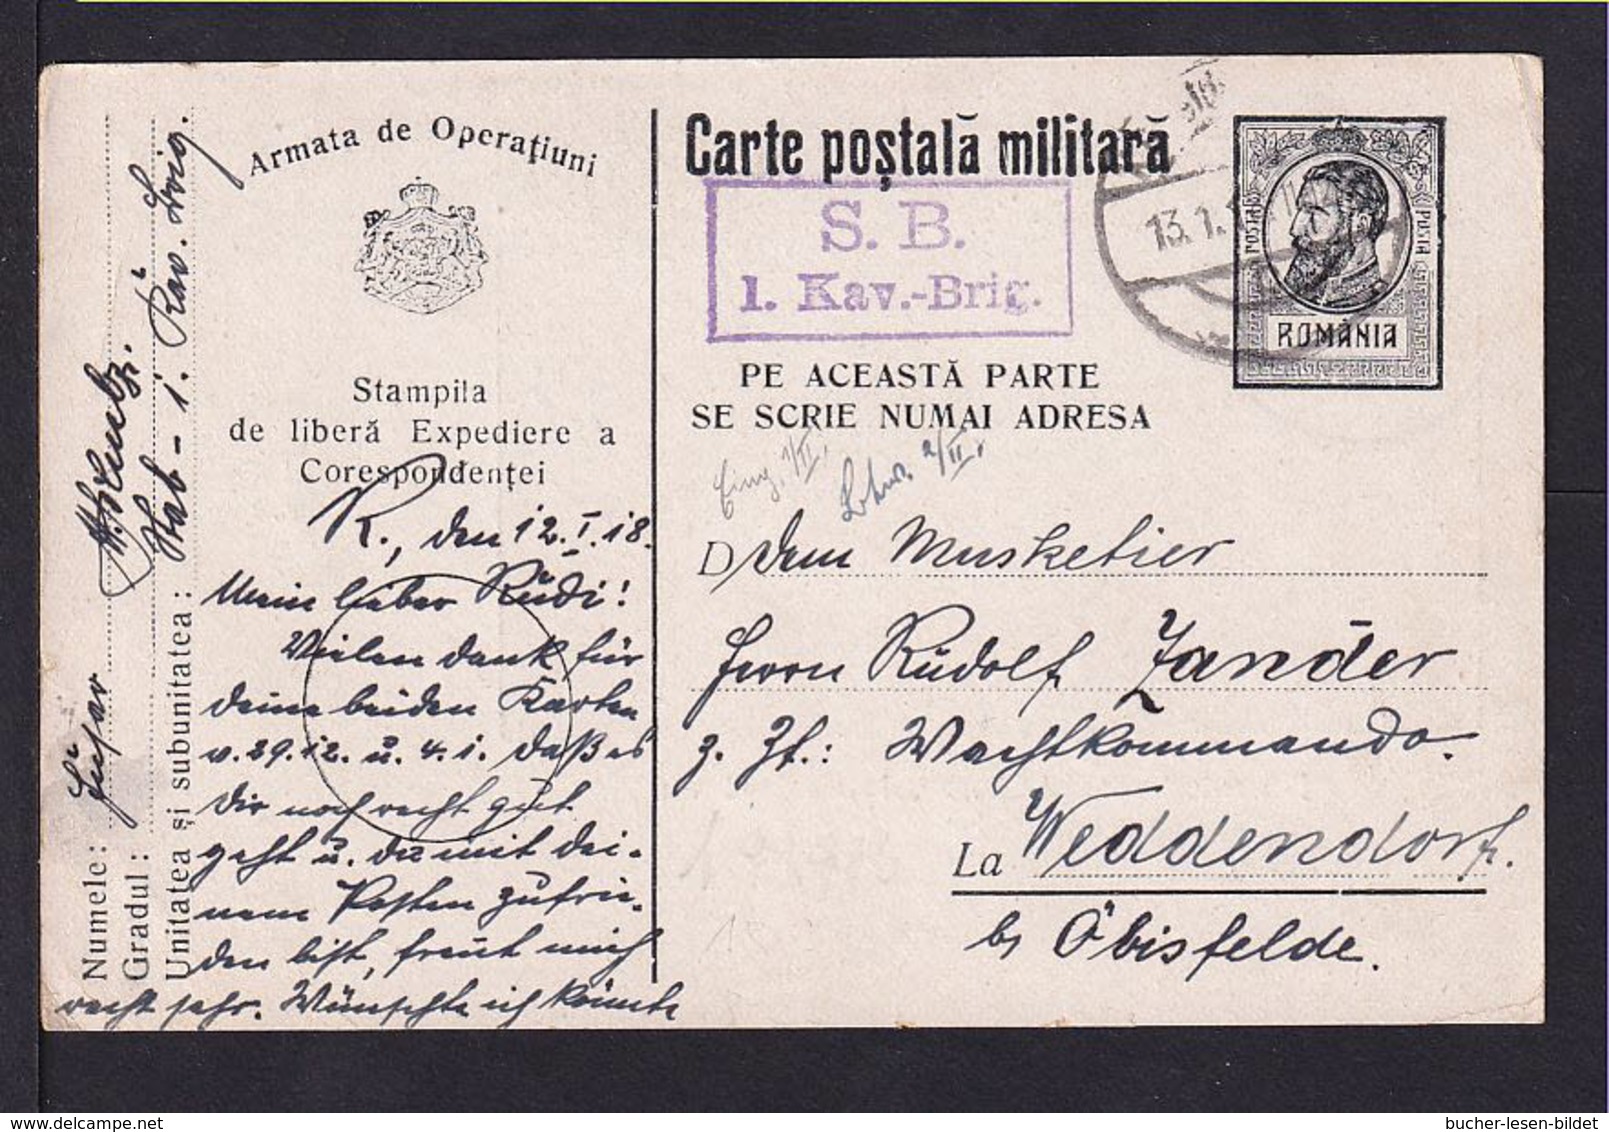 Armata de Operațiuni
Stampila
de liberă Expediere a
Corespondenței
R., den 12.I.18.
Mein lieber Rudi!
Vielen Dank für
deine beiden Karten
v. 29.12. u. 4.1. Daß es
Dir noch recht gut
geht u. du mit dei-
nem Posten zufrie-
den bist, freut mich
recht sehr. Wünschte ich könnte
Numele:
Gradul:
Unitatea și subunitatea: Stab - 1. Kav. Brig.
Carte poștală militară
S. B.
1. Kav.-Brig.
13.1.
POSTA
POSTA
ROMÂNIA
PE ACEASTĂ PARTE
SE SCRIE NUMAI ADRESA
Eing. 1/II.
2/II.
D dem Musketier
Herrn Rudolf Zander
z. Zt.: Wachtkommando.
La Weddendorf.
b/ Öbisfelde.
bucher-lesen-bildet